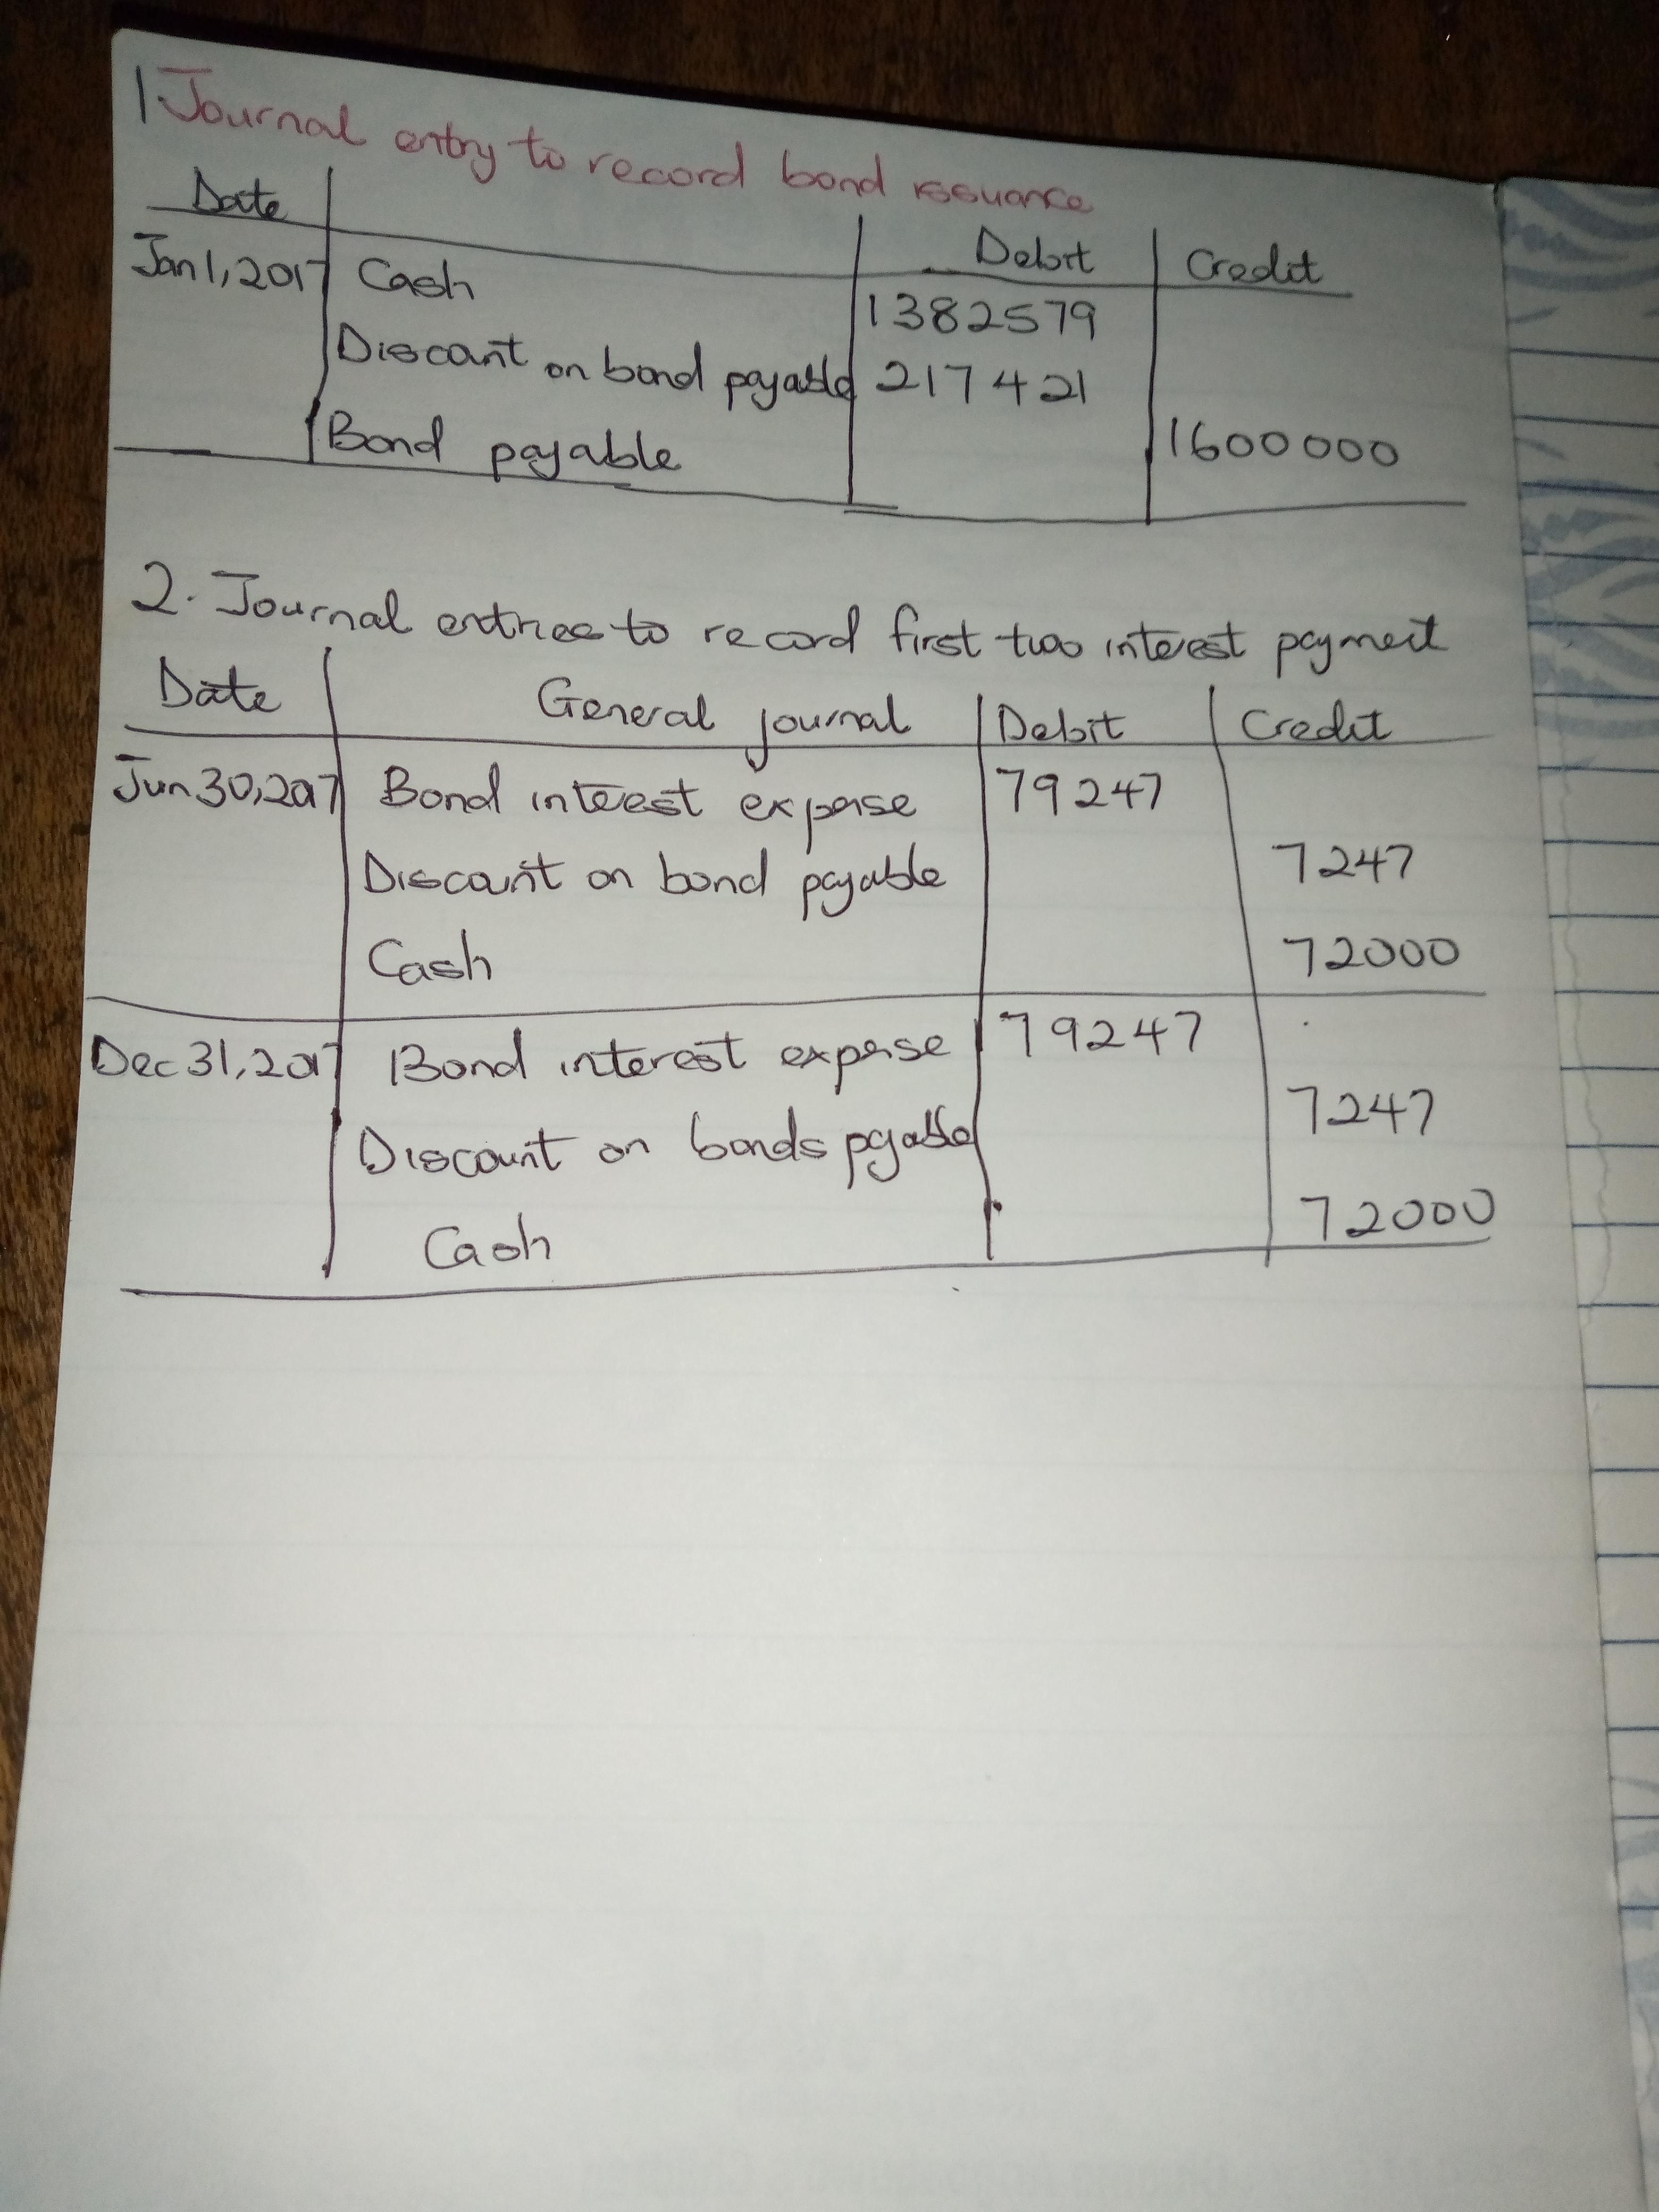 1. Journal entry to record bond issuance
Date Debit Credit
Jan 1, 2017 Cash 1382579
Discount on bond payable 217421
Bond payable 1600000
2. Journal entries to record first two interest payment
Date General journal Debit Credit
Jun 30, 2017 Bond interest expense 79247
Discount on bond payable 7247
Cash 72000
Dec 31, 2017 Bond interest expense 79247
Discount on bonds payable 7247
Cash 72000